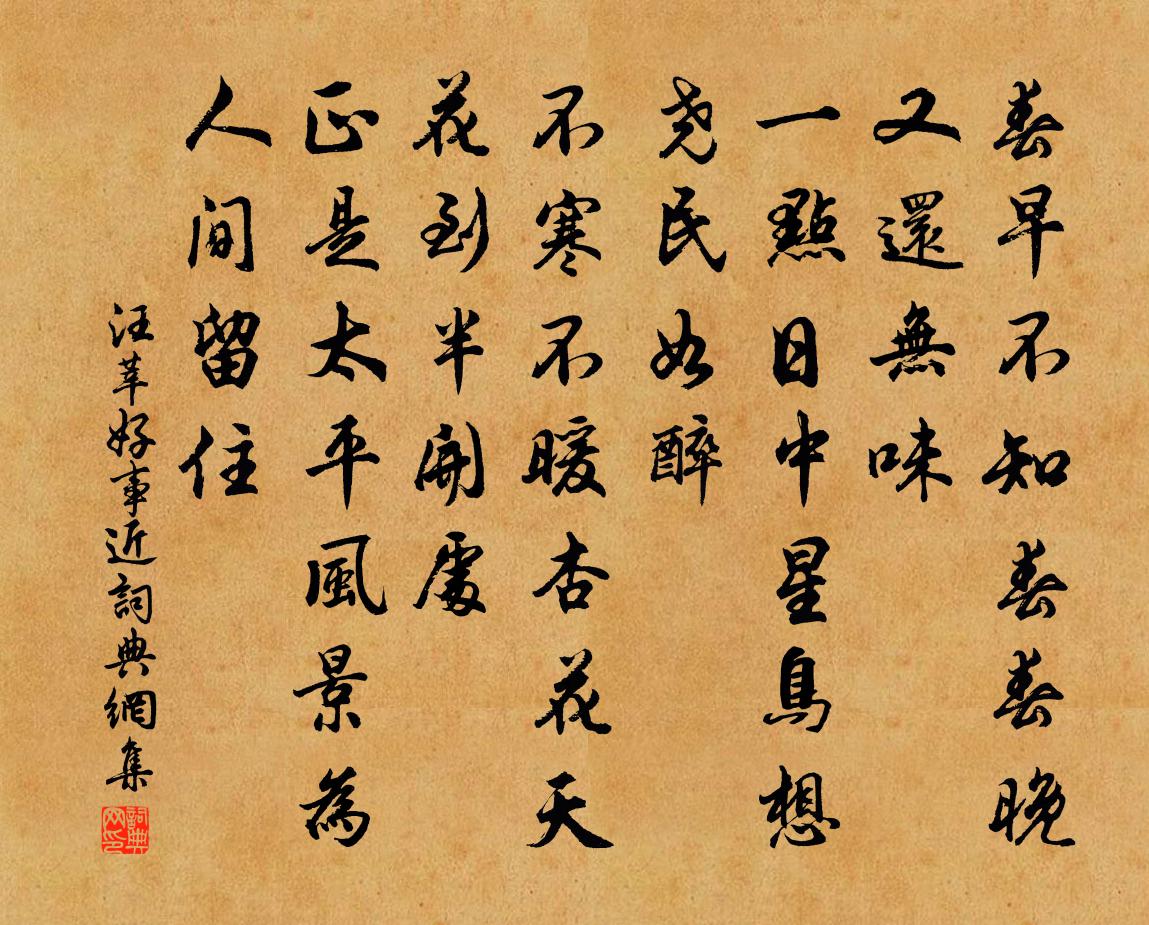 春早不知春春晚
又還無味
一點日中星鳥想
堯民如醉
不寒不暖杏花天
花到半開處
正是太平風景為
人間留住
汪莘好事近詞典網集
詞典网印